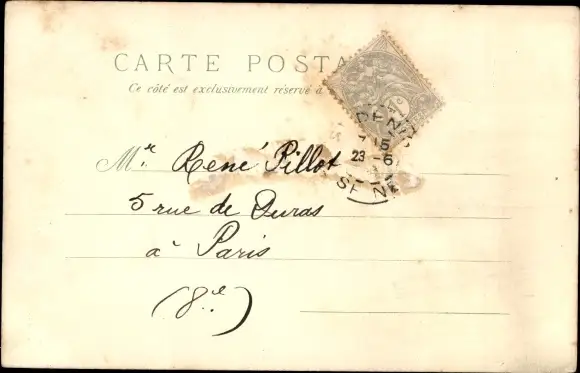 CARTE POSTA
Ce côté est exclusivement réservé à
DENIS
7 15
23 -6
SEINE
Mr. René Pillot
5 rue de Duras
à Paris
(8e)